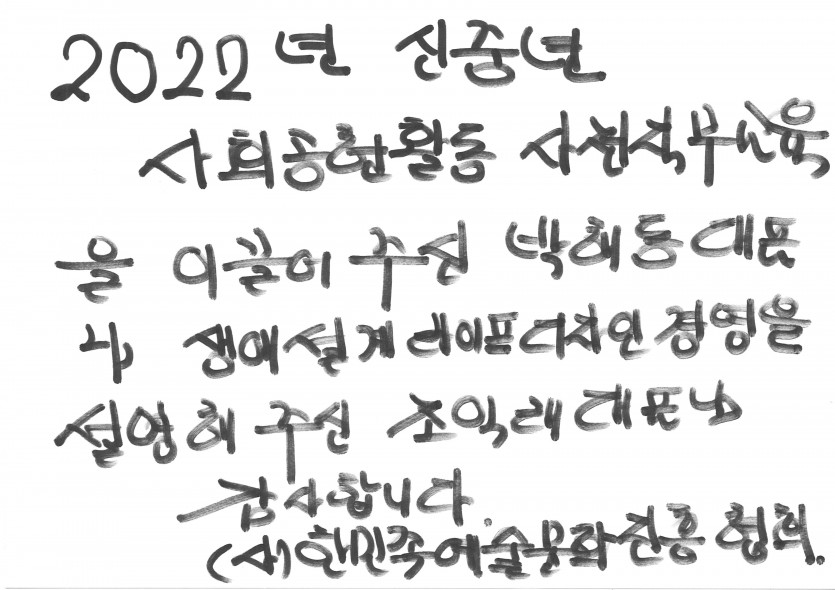 2022년 신중년
사회공헌활동 사전직무교육
을 이끌어 주신 박해동 대표
님 생애설계 라이프디자인 경영을
설명해 주신 조익래 대표님
감사합니다
(사)한민족예술문화진흥협회..